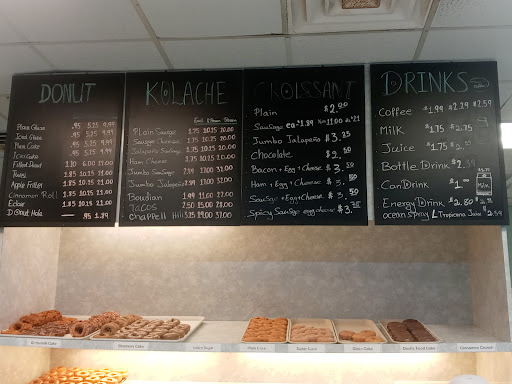 DONUT
Plane Glaze .95 5.25 9.99
Iced Glaze .95 5.25 9.99
Plane Cake .95 5.25 9.99
Iced Cake .95 5.25 9.99
Filled Donut 1.10 6.00 11.00
Twist 1.85 10.15 21.00
Apple Fritter 1.85 10.15 21.00
Cinnamon Roll 1.85 10.15 21.00
Eclair 1.85 10.15 21.00
Donut Hole .95 1.89
KOLACHE
Plain Sausage 1.75 10.25 20.00
Sausage Cheese 1.75 10.25 20.00
Jalapeño Sausage 1.75 10.25 20.00
Ham Cheese 1.75 10.25 20.00
Jumbo Sausage 2.99 17.00 32.00
Jumbo Jalapeño 2.99 17.00 32.00
Boudian 1.99 11.00 22.00
Tacos 2.50 15.00 28.00
Chappell Hill 3.25 19.00 37.00
CROISSANT
Plain $2.00
Sausage
Jumbo Jalapeño $3.25
Chocolate $2.50
Bacon + Egg + Cheese $3.50
Ham + Egg + Cheese $3.50
Sausage + Egg + Cheese $3.50
Spicy Sausage egg cheese $3.75
DRINKS
Coffee $1.99 $2.29 $2.59
Milk $1.75 $2.75
Juice $1.75 $2.
Bottle Drink $2.39
Can Drink $1.00
Energy Drink $2.80
ocean spray / Tropicana Juice $2.59
Buttermilk Cake
Blueberry Cake
Plain Cake
Sugar Cake
Glaze Cake
Devil's Food Cake
Cinnamon Crunch